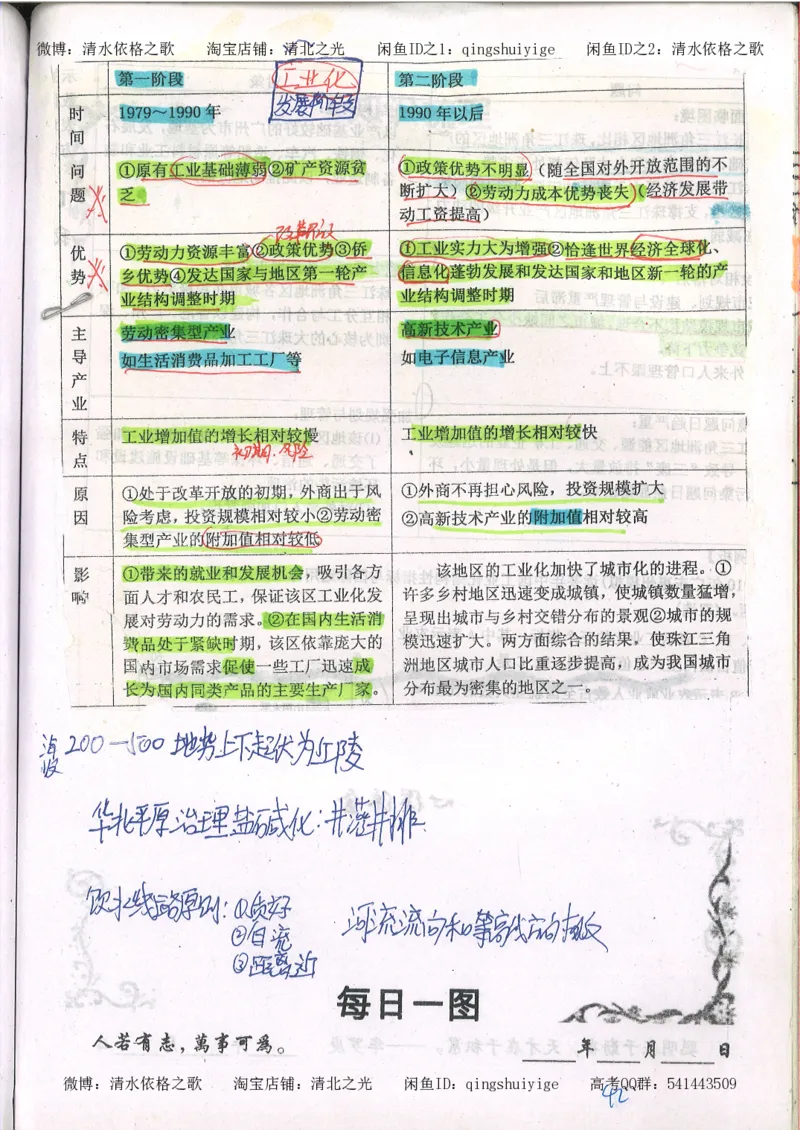 微博：清水依格之歌 淘宝店铺：清北之光 闲鱼ID之1：qingshuiyige 闲鱼ID之2：清水依格之歌
工业化
发展阶段
第一阶段 第二阶段
时间 1979～1990 年 1990 年以后
问题
①原有工业基础薄弱②矿产资源贫
乏
①政策优势不明显（随全国对外开放范围的不
断扩大）②劳动力成本优势丧失（经济发展带
动工资提高）
改革开放
优势
①劳动力资源丰富②政策优势③侨
乡优势④发达国家与地区第一轮产
业结构调整时期
①工业实力大为增强②恰逢世界经济全球化、
信息化蓬勃发展和发达国家和地区新一轮的产
业结构调整时期
主导产业
劳动密集型产业
如生活消费品加工工厂等
高新技术产业
如电子信息产业
特点
工业增加值的增长相对较慢
初期.风险
工业增加值的增长相对较快
原因
①处于改革开放的初期，外商出于风
险考虑，投资规模相对较小②劳动密
集型产业的附加值相对较低
①外商不再担心风险，投资规模扩大
②高新技术产业的附加值相对较高
影响
①带来的就业和发展机会，吸引各方
面人才和农民工，保证该区工业化发
展对劳动力的需求。②在国内生活消
费品处于紧缺时期，该区依靠庞大的
国内市场需求促使一些工厂迅速成
长为国内同类产品的主要生产厂家。
该地区的工业化加快了城市化的进程。①
许多乡村地区迅速变成城镇，使城镇数量猛增，
呈现出城市与乡村交错分布的景观②城市的规
模迅速扩大。两方面综合的结果，使珠江三角
洲地区城市人口比重逐步提高，成为我国城市
分布最为密集的地区之一。
海拔200—500 地势上下起伏为丘陵
华北平原治理盐碱化：井灌井排
饮水线路原则：①质好
②自流
③距离近
河流流向和等高线凸向相反
每日一图
人若有志，萬事可為。
年 月 日
微博：清水依格之歌 淘宝店铺：清北之光 闲鱼ID：qingshuiyige 高考QQ群：541443509
42